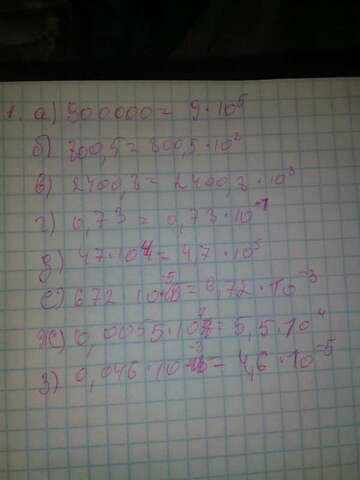 1. а) 900000 = 9·10⁵
б) 300,5 = 300,5·10²
в) 2400,3 = 2400,3·10³
г) 0,73 = 0,73·10⁻¹
д) 47·10⁴ = 4,7·10⁵
е) 672·10⁻⁵ = 6,72·10⁻³
ж) 0,0055·10⁷ = 5,5·10⁴
з) 0,046·10⁻³ = 4,6·10⁻⁵